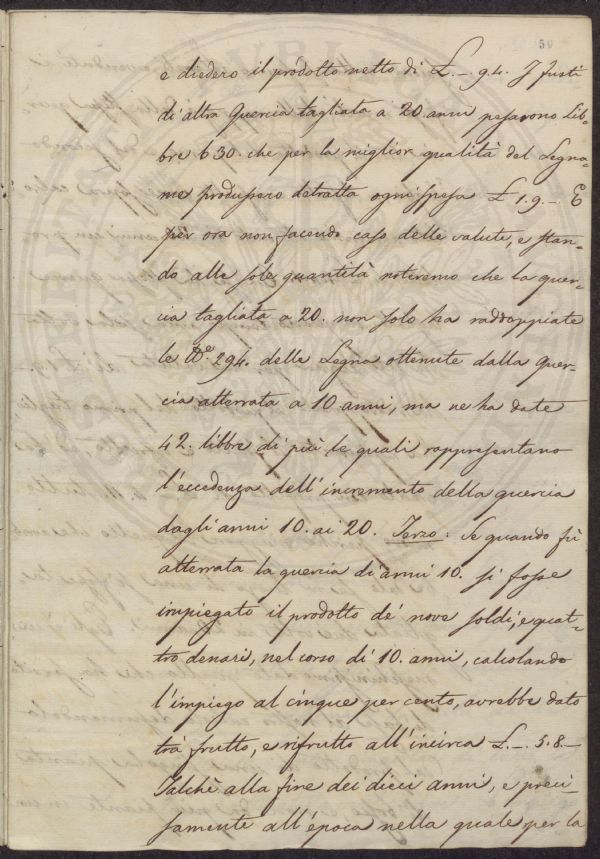 59
e diedero il prodotto netto di £.-9.4. I fusti
di altra Quercia tagliata a 20. anni pesarono Lib-
bre 630. che per la miglior qualità del Legna-
me produssero detratta ogni spesa £ 1.9.- E
per ora non facendo caso delle valute, e stan-
do alle sole quantità noteremo che la quer-
cia tagliata a 20. non solo ha raddoppiate
le 294. delle Legna ottenute dalla Quer-
cia atterrata a 10 anni, ma ne ha date
42. libbre di più le quali rappresentano
l'eccedenza dell'incremento della quercia
dagli anni 10. ai 20. Terzo: Se quando fù
atterrata la quercia di anni 10. si fosse
impiegato il prodotto de' nove soldi, e quat-
tro denari, nel corso di 10. anni, calcolando
l'impiego al cinque per cento, avrebbe dato
trà frutto, e rifrutto all'incirca £.-.5.8.-
Talchè alla fine dei dieci anni, e preci-
samente all'epoca nella quale per la